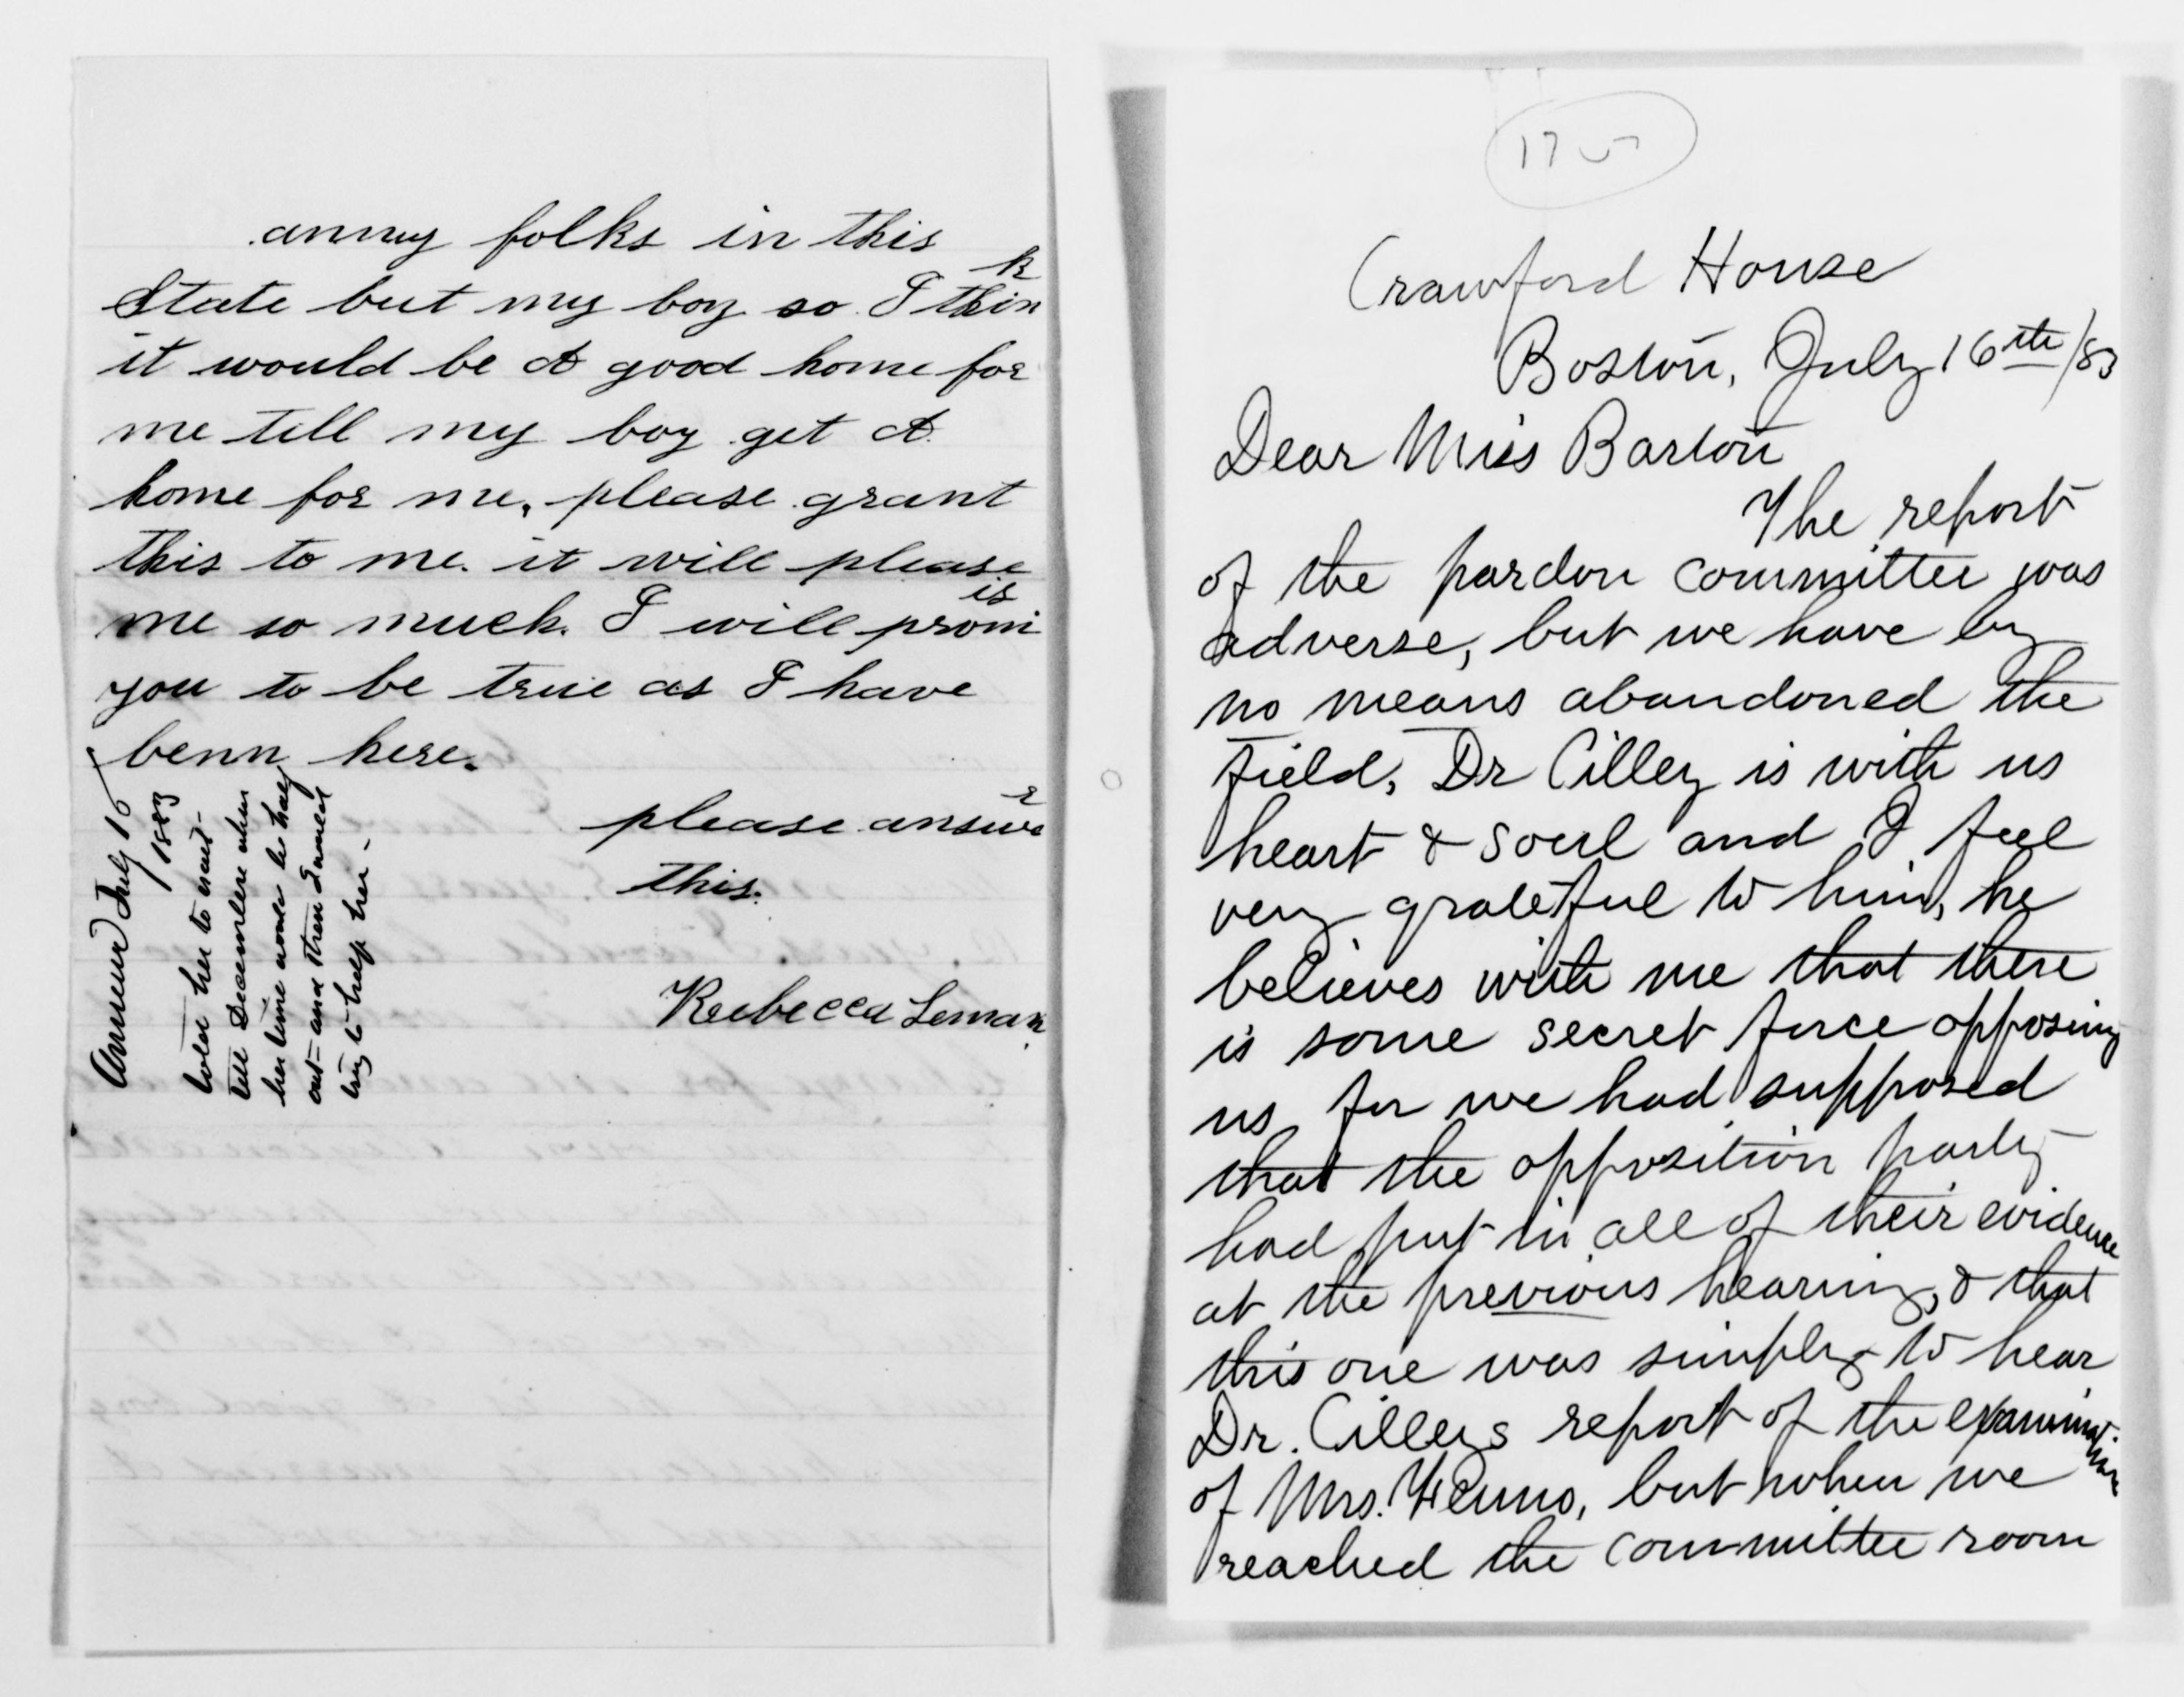 anny folks in this
State but my boy so I think
it would be A good home for
me till my boy get A
home for me, please grant
this to me. it will please
me so much. I will promis
you to be true as I have
benn here.
please answer
this.
Reebecca Leman
Answered July 16
1883
told her to wait
till December when
her time would be half
out - and then I would
try to help her -
17
Crawford House
Boston, July 16th/83
Dear Miss Barton
The report
of the pardon committee was
adverse, but we have by
no means abandoned the
field, Dr Cilley is with us
heart & soul and I feel
very grateful to him, he
believes with me that there
is some secret force opposing
us for we had supposed
that the opposition party
had put in all of their evidence
at the previous hearing, & that
this one was simply to hear
Dr. Cilleys report of the examination
of Mrs. but when we
reached the committee room